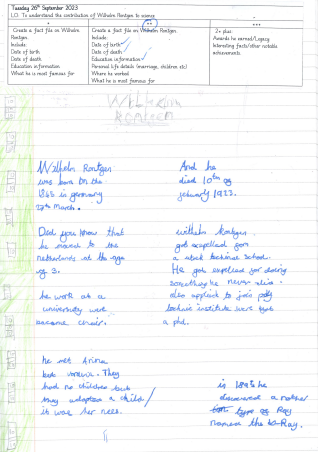 Tuesday 26th September 2023
LO: To understand the contribution of Wilhelm Rontgen to science
*
**
***
Create a fact file on Wilhelm
Rontgen.
Include:
Date of birth
Date of death
Education information
What he is most famous for
Create a fact file on Wilhelm Rontgen.
Include:
Date of birth
Date of death
Education information
Personal life details (marriage, children etc)
Where he worked
What he is most famous for
2* plus:
Awards he earned/Legacy
Interesting facts/other notable
achievements.
Wilhelm Rontgen
was born on the
1845 in germany
27th March.
And he
died 10th of
february 1923.
Did you know that
he moved to the
netherlands at the age
of 3.
wilhelm Rontgen
got expelled from
a technic school.
He got expelled for doing
something he never did.
also applied to
technic institute were
a phd.
he work at a
university were
became
he met
but They
had no children but
they adoption a child/
it was her
in he
discovered a
type of Ray
named the Ray.